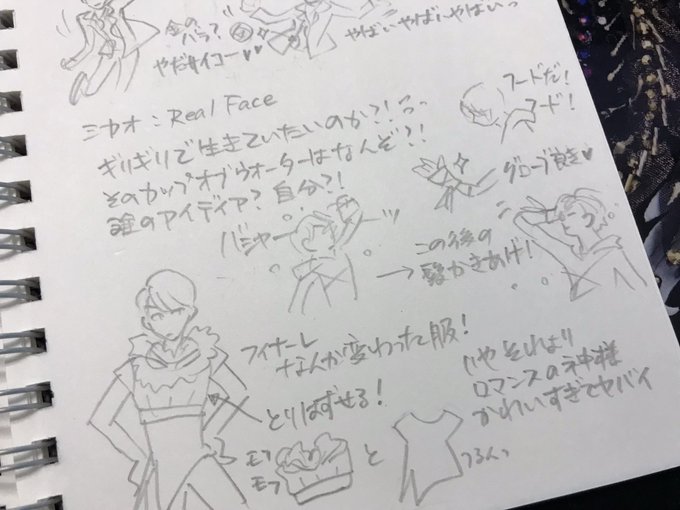 金のバラ?
やだサイコー♥♥
やばいやばいやばいっ
ミカオ:Real Face
ギリギリで生きていたいのか?!って
そのカップオブウォーターはなんぞ?!
誰のアイディア?自分?!
フードだ!
フード!
グローブ良き♥
バシャーッ
→この後の
髪かきあげ!
フィナーレ
なんか変わった服!
とりはずせる!
モフ
モフ
と
つるんっ
いやそれより
ロマンスの神様
かわいすぎてヤバイ